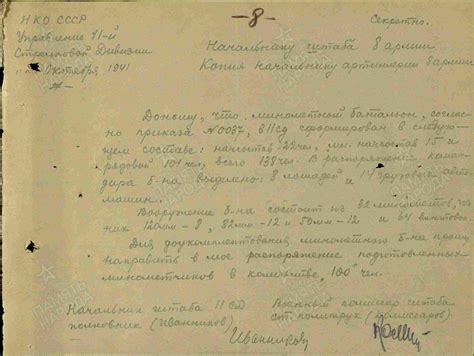 НКО СССР
Управление 11-й
Стрелковой Дивизии
Октября 1941
-8-
Секретно.
Начальнику штаба 8 армии
Копия начальнику артиллерии 8 армии
Доношу, что минометный баталион, соглас-
но приказа №0037, в 11 сд сформирован в следую-
щем составе: начсостав - 22 чел, мл. начсостав 15 и
рядовой 101 чел, всего 138 чел. В распоряжение коман-
дира б-на выделено: 8 лошадей и 14 грузовых авто-
машин.
Вооружение б-на состоит из 32 минометов, из
них 120мм - 8, 82мм - 12 и 50мм - 12 и 64 винтовки
Для доукомплектования минометного б-на прошу
направить в мое распоряжение подготовленных
минометчиков в количестве 100 чел.
Начальник штаба 11 СД
полковник (Иванников)
Иванников
Военный комиссар штаба
ст. политрук (Комиссаров)